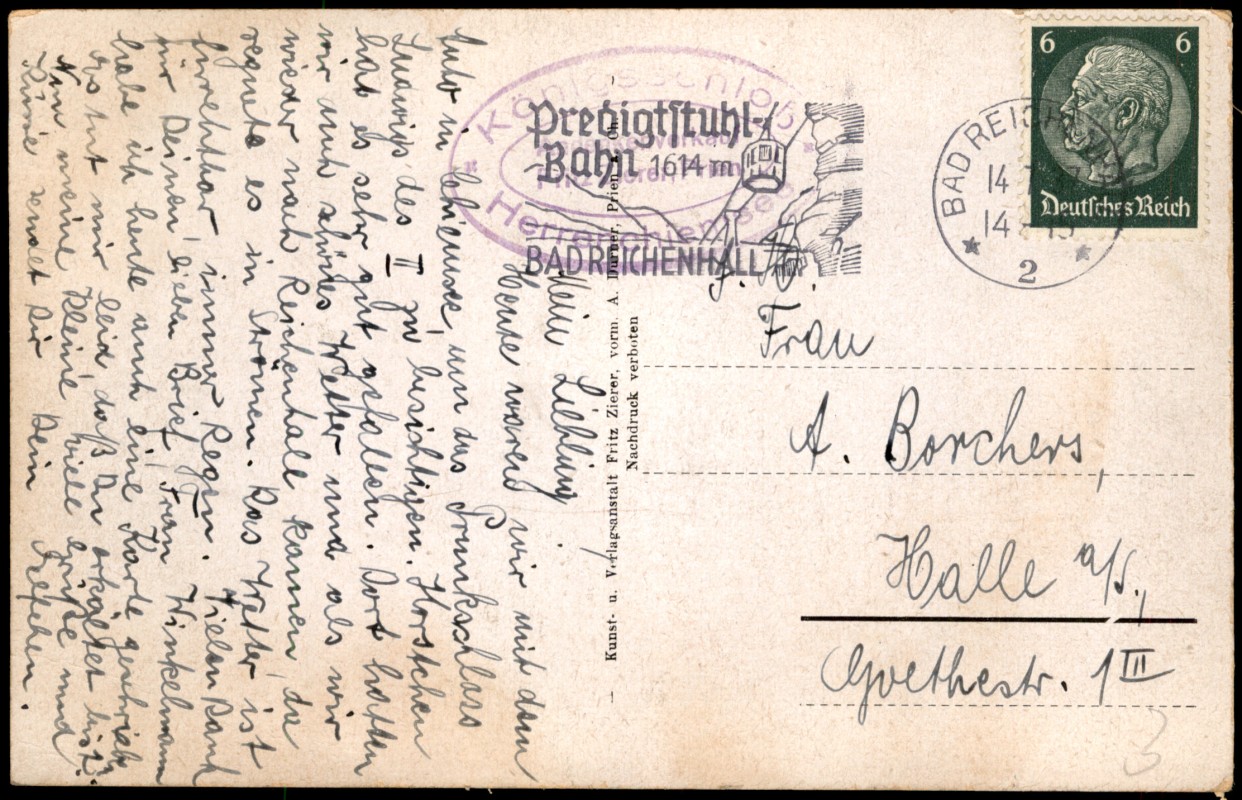 Mein Liebling!
Heute waren wir mit dem
Auto in Chiemsee, um das Prunkschloss
Ludwigs des II zu besichtigen. Horstchen
hat es sehr gut gefallen. Dort hatten
wir auch schönes Wetter und als wir
wieder nach Reichenhall kamen, da
regnete es in Strömen. Das Wetter ist
furchtbar, immer Regen. Vielen Dank
für Deinen lieben Brief, Frau Winkelmann
habe ich heute auch eine Karte geschrieben
es tut mir leid, daß Du erkältet bist.
Nun meine Kleine, viele Grüße und
Küsse sendet Dir Dein
Königsschloß
Herrenchiemsee
Predigtstuhl-
Bahn 1614 m
BAD REICHENHALL
Kunst- u. Verlagsanstalt Fritz Zierer, vorm. A. Durner, Prien a. Ch.
Nachdruck verboten
6 6
Deutsches Reich
BAD REICHENHALL
14
14
2
Frau
A. Borchers,
Halle a/S.,
Goethestr. 1 III
3